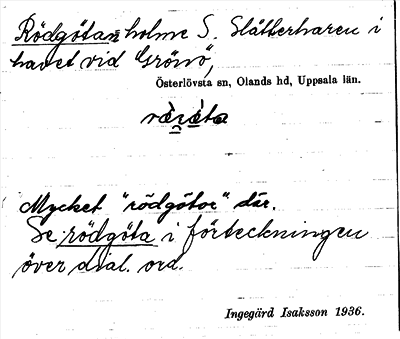 Rödgötan holme S. Slätterharen i
havet vid Grönö,
Österlövsta sn, Olands hd, Uppsala län.
Mycket "rödgötor" där.
Se rödgöta i förteckningen
över dial. ord.
Ingegärd Isaksson 1936.